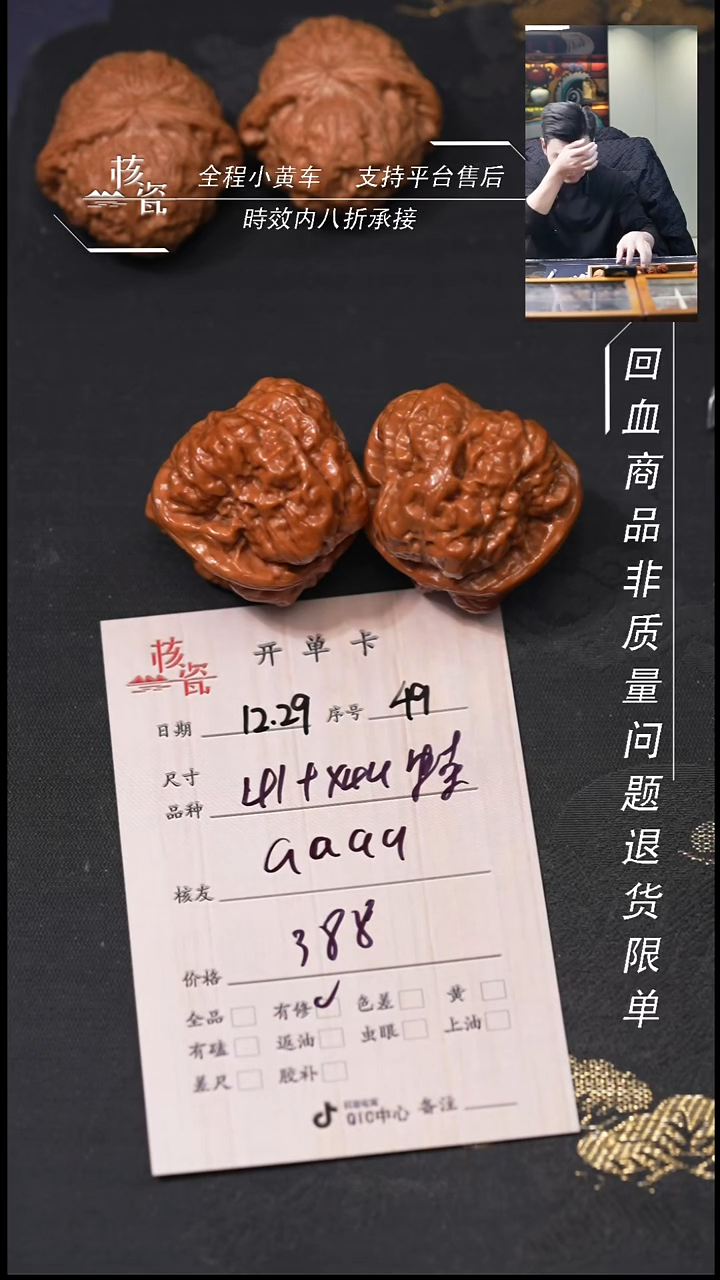 核瓷
全程小黄车 支持平台售后
時效内八折承接
回血商品非质量问题退货限单
核瓷
开单卡
日期 12.29 序号 49
尺寸
品种
aaaa
核友
388
价格
全品 有修 ✓ 色差 黄
有磕 返油 虫眼 上油
差尺 胶补
QIC中心 备注